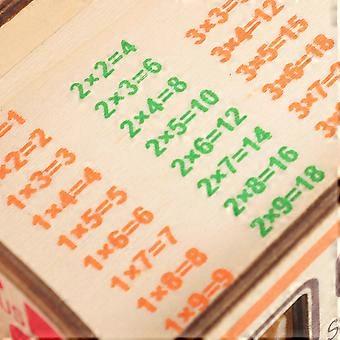 =1
×2=2
1×3=3
1×4=4
1×5=5
1×6=6
1×7=7
1×8=8
1×9=9
2×2=4
2×3=6
2×4=8
2×5=10
2×6=12
2×7=14
2×8=16
2×9=18
3×3=
3×4=12
3×5=15
3×6=18
3×7=
3×8
3×
US
S